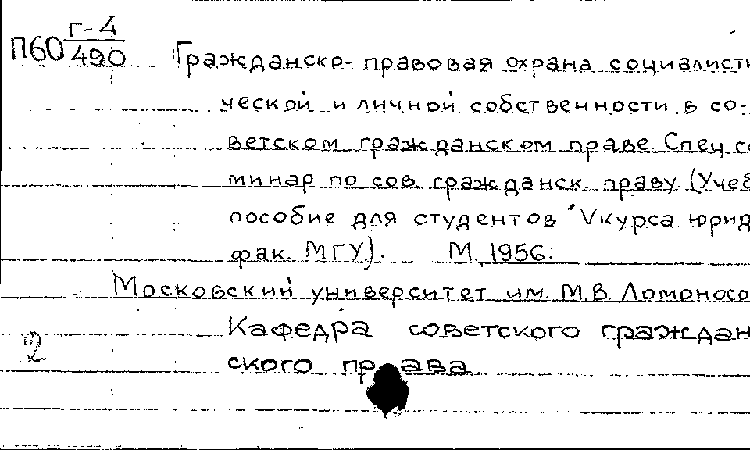 Г-4
П60 490
Гражданско-правовая охрана социалисти
ческой и личной собственности в со-
ветском гражданском праве. Спец се
минар по сов. гражданск. праву (Учеб
пособие для студентов V курса юрид
фак. МГУ). М, 1956.
Московский университет им. М.В. Ломоносо
Кафедра советского граждан
ского права
2